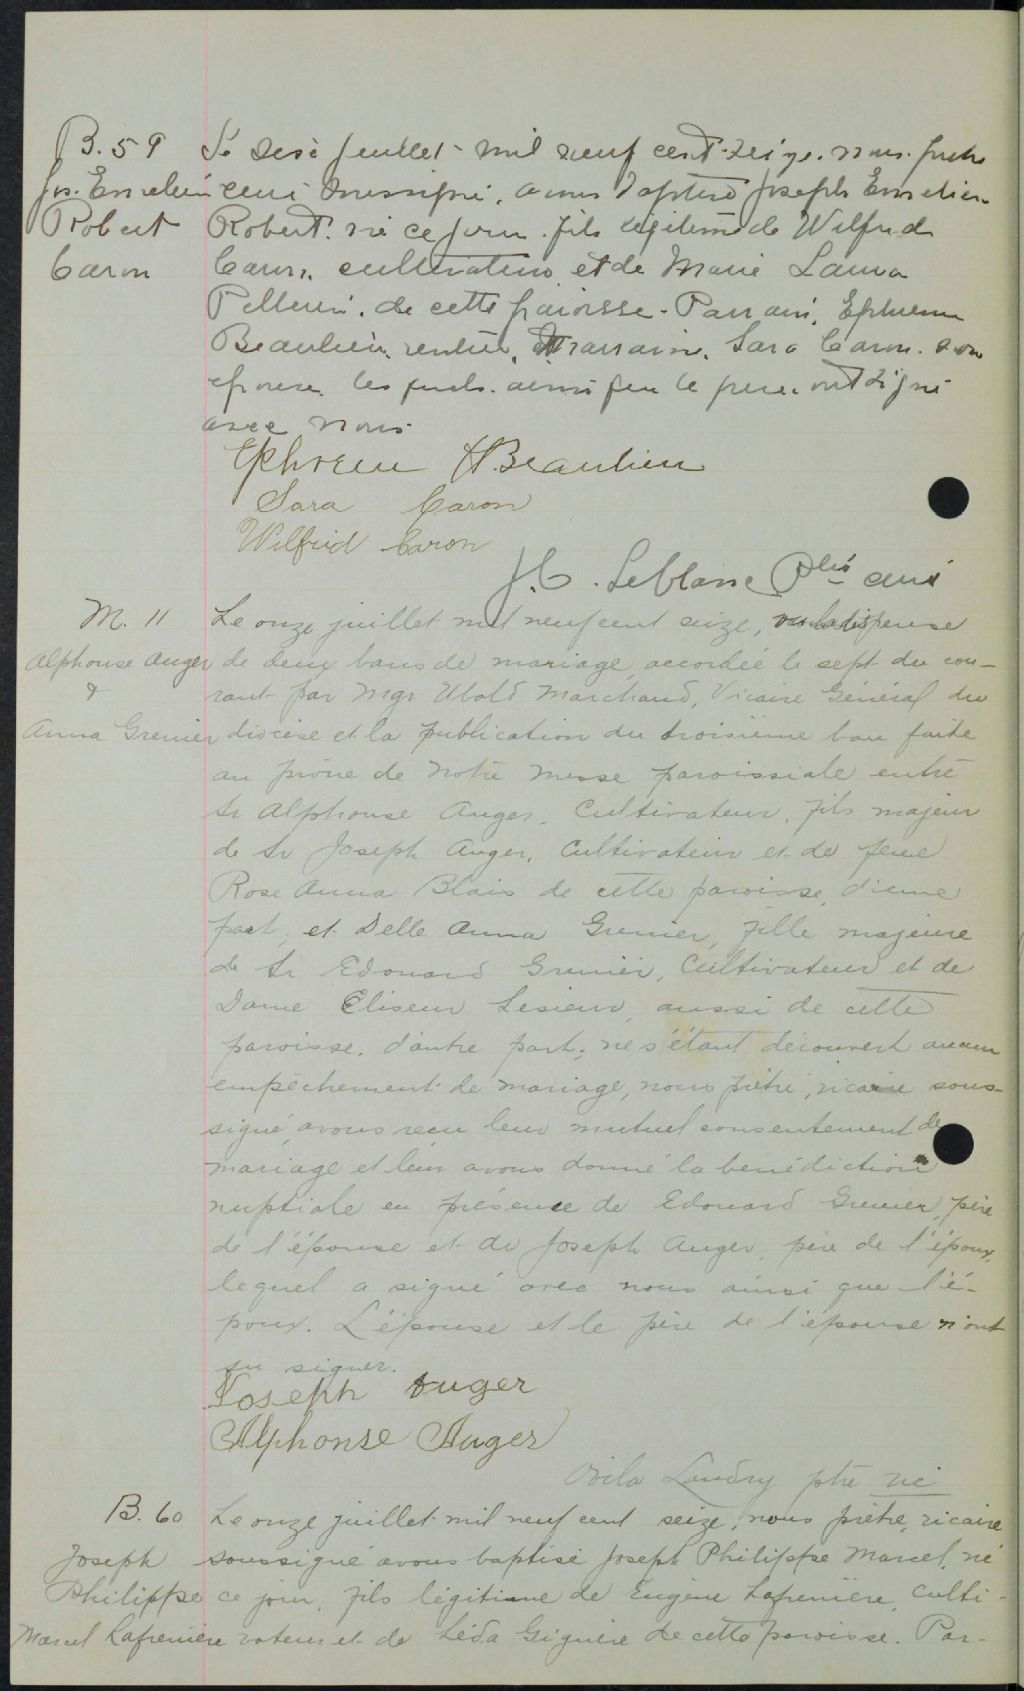 B. 59
Jos. Emelien
Robert
Caron
Le dix juillet mil neuf cent seize nous prêtre
curé soussigné, avons baptisé Joseph Emelien
Robert né ce jour fils légitime de Wilfrid
Caron, cultivateur et de Marie Laura
Pellerin, de cette paroisse. Parrain, Ephrem
Beaulieu, rentier, Marraine, Sara Caron son
épouse les quels ainsi que le père ont signé
avec nous
Ephrem H Beaulieu
Sara Caron
Wilfrid Caron
J. C. Leblanc Ptre curé
M. 11
Alphonse Auger
&
Anna Grenier
Le onze juillet mil neuf cent seize, vu la dispense
de deux bans de mariage accordée le sept du cou-
rant par Mgr Ubald Marchand, Vicaire Général du
diocèse et la publication du troisième ban faite
au prône de notre messe paroissiale entre
Sr Alphonse Auger, Cultivateur, fils majeur
de Sr Joseph Auger, Cultivateur et de feue
Rose Anna Blais de cette paroisse, d'une
part, et Delle Anna Grenier, fille majeure
de Sr Edouard Grenier, Cultivateur et de
Dame Eliseur Lesieur, aussi de cette
paroisse, d'autre part; ne s'étant découvert aucun
empêchement de mariage, nous prêtre, vicaire sous-
signé, avons reçu leur mutuel consentement de
mariage et leur avons donné la bénédiction
nuptiale en présence de Edouard Grenier, père
de l'épouse et de Joseph Auger, père de l'époux,
lequel a signé avec nous ainsi que l'é-
poux. L'épouse et le père de l'épouse n'ont
su signer.
Joseph Auger
Alphonse Auger
Ovila Landry ptre vic
B. 60
Joseph
Philippe
Marcel Lafrenière
Le onze juillet mil neuf cent seize, nous prêtre, vicaire
soussigné avons baptisé Joseph Philippe Marcel, né
ce jour, fils légitime de Eugène Lafrenière, culti-
vateur et de Léda Giguère de cette paroisse. Par-